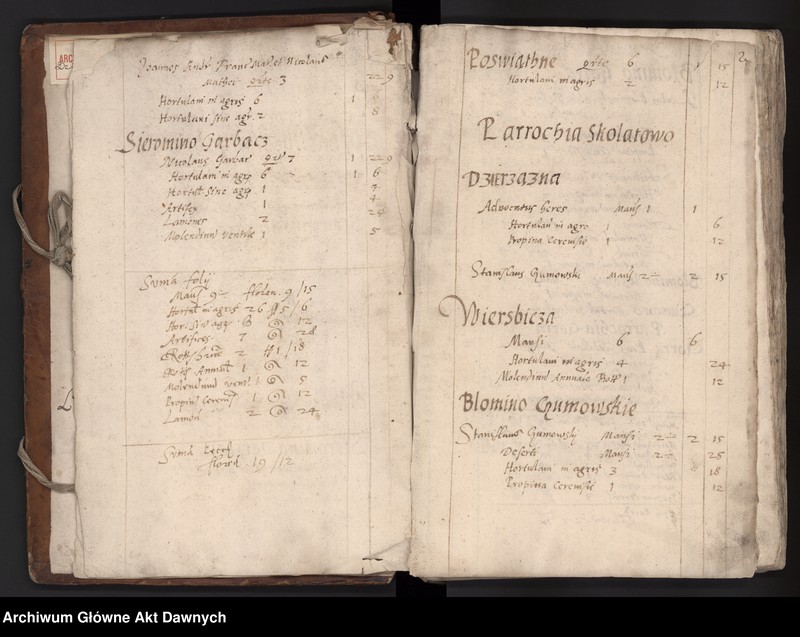 Mathei orte 3 22 9
Hortulani in agris 6 1 6
Hortulani sine agr. 2 8
Sieromino Garbacz
Nicolaus Garbac orte 7 1 22 9
Hortulani in agris 6 1 6
Hortul sine agr 1 4
Artifex 1 4
Laniones 2 24
Molendinu ventile 1 5
Suma folij
Mansi 9 floren. 9 / 15
Hortul in agris 26 fl 5 / 6
Hor. sine agr 3 12
Artifices 7 28
2 fl 1 / 18
Rotf Annual 1 12
Molendinu vent 1 5
Propin Cerems 1 12
Lanion 2 24
Suma
floren 19 / 12
2
Poswiathne orte 6 1 15
Hortulani in agris 2 12
Parrochia Skolatowo
Dzierzazna
Advventus heres Mans 1 1
Hortulani in agro 1 6
Propina Cerevisie 1 12
Stanislaus Gumowski Mans 2 2 15
Wiersbicza
Mansi 6 6
Hortulani in agris 4 24
Molendinu Annuale Rott 1 12
Blomino Gumowskie
Stanislaus Gumowsky Mansi 2 2 15
Deserti Mansi 2 25
Hortulani in agris 3 18
Propina Cerevisie 1 12
Archiwum Główne Akt Dawnych